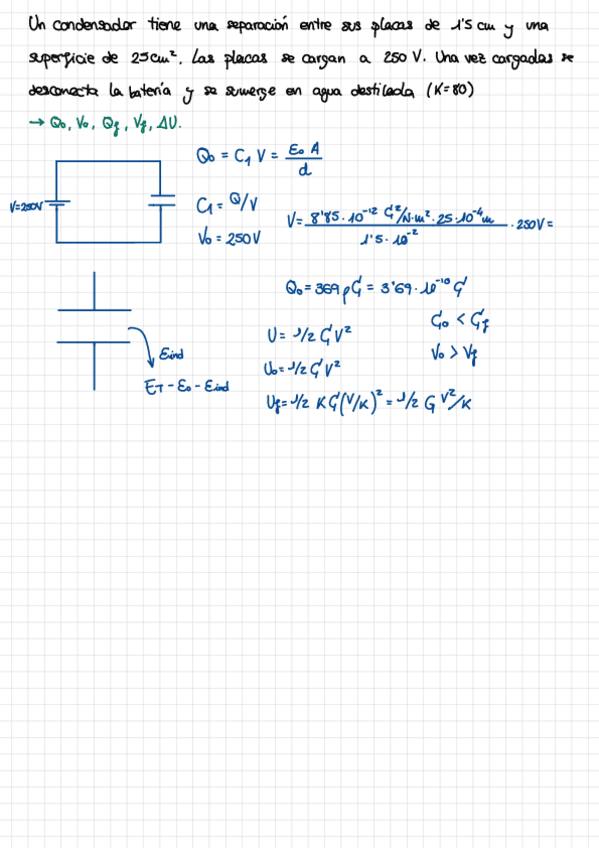 Un condensador tiene una separación entre sus placas de 1'5 cm y una
superficie de 25cm². Las placas se cargan a 250 V. Una vez cargadas se
desconecta la batería y se sumerge en agua destilada (K=80)
→ Q₀, V₀, Qf, Vf, ΔU.
Q₀ = C₁ V = ε₀ A / d
V=250V
C₁ = Q/V
V = 8'85·10⁻¹² C²/N·m² · 25·10⁻⁴ m / 1'5·10⁻² · 250V =
V₀ = 250V
Q₀ = 369 pC = 3'69·10⁻¹⁰ C
C₀ < Cf
U = 1/2 C V²
V₀ > Vf
Eind
U₀ = 1/2 C V²
ET - E₀ - Eind
Uf = 1/2 K C (V/K)² = 1/2 C V²/K